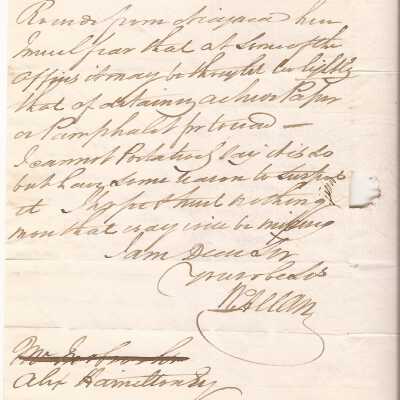 I much fear that at some of the
offices it may be thought too lightly
that of detaining a News Paper
or Pamphlet to read —
I cannot Positively Say it is so
but have some reason to suspect
it I hope & trust nothing
more that way will be missing
I am Dear Sir
your obed Ser
R Allan
Alex Hamilton Esq